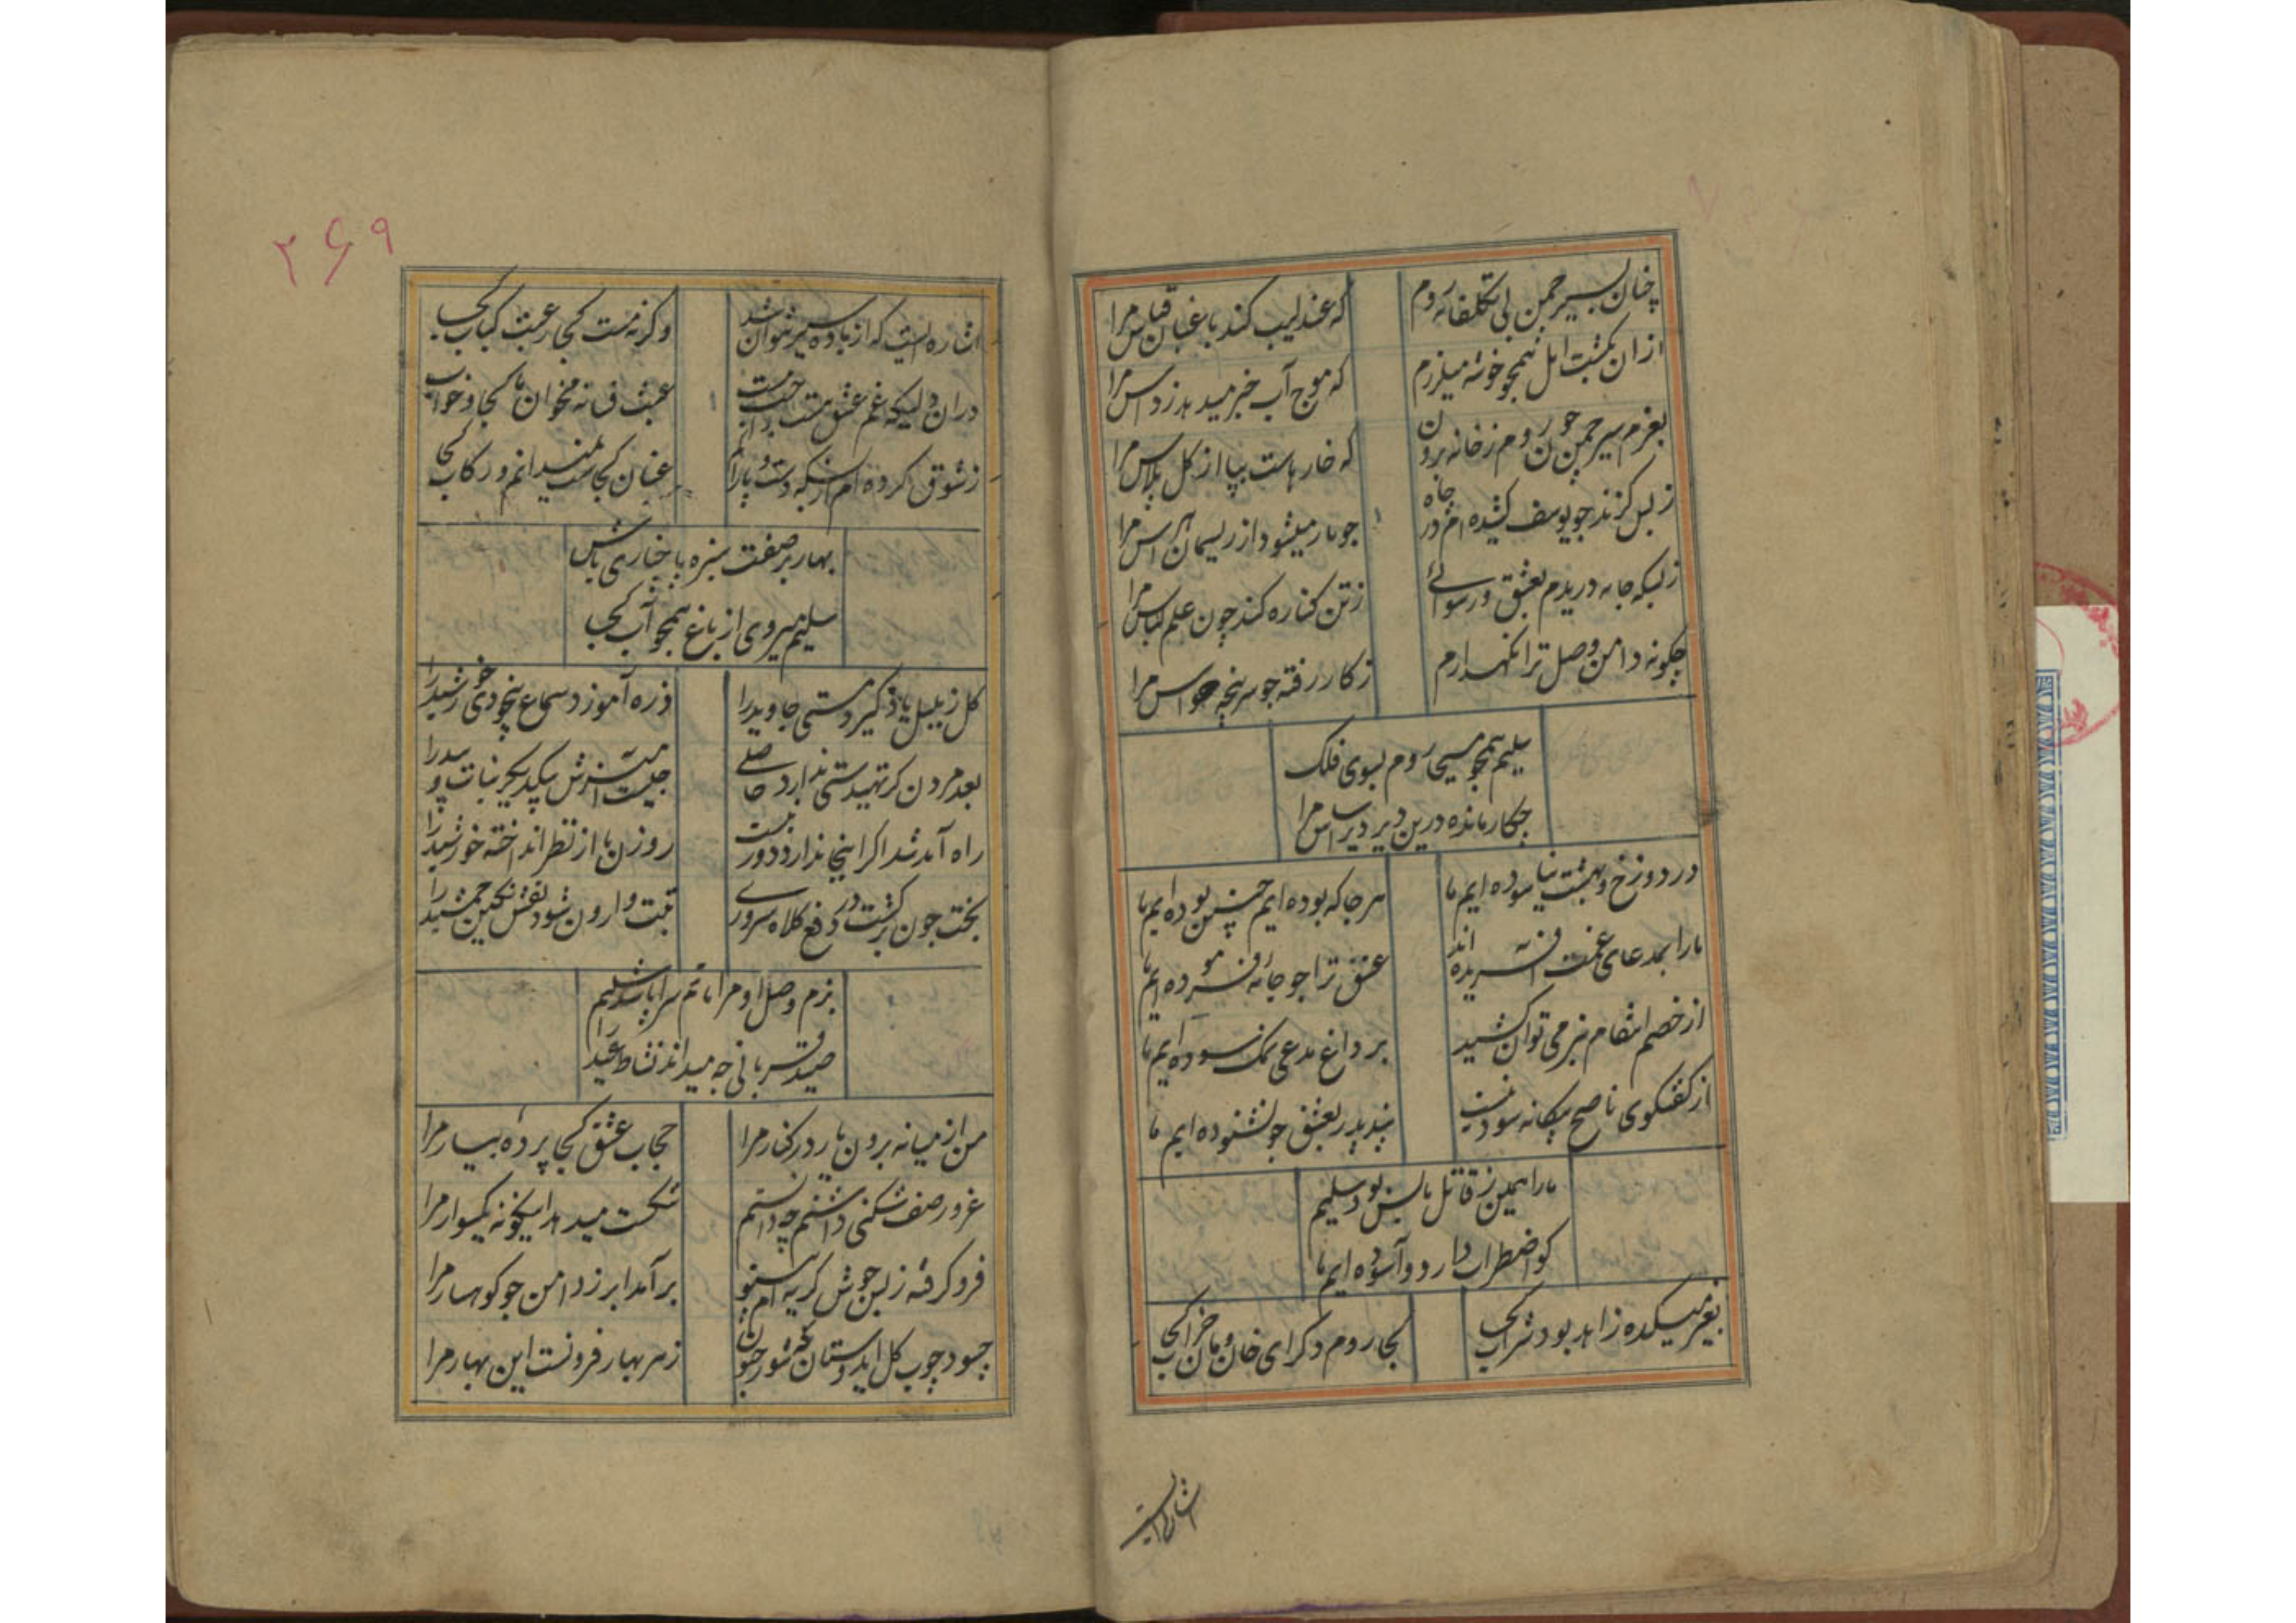 چنان بسیر چمن بی تکلفانه روم
که عندلیب کند باغبان قیاس مرا
ازان بکشت امل همچو خوشه میلرزم
که موج آب خبر میدهد ز داس مرا
بعزم سیر چمن چون روم ز خانه برون
که خارهاست بپا از کل پلاس مرا
ز بس کزند چو یوسف کشیده ام در چاه
چو مار میشود از ریسمان هراس مرا
ز بسکه جامه دریدم بعشق و رسوائی
ز تن کناره کند چون علم لباس مرا
چکونه دامن وصل ترا نکهدارم
ز کار رفته چو سر پنجه حواس مرا
سلیم همچو مسیحا روم بسوی فلک
چکار مانده درین دیر دیراس مرا
در دوزخ و بهشت نیاسوده ایم ما
هر جا که بوده ایم چنین بوده ایم ما
ما را بمدعای غمت آفریده اند
عشق ترا چو جائه فرموده ایم ما
از خصم انتقام بنرمی توان کشید
بر داغ مدعی نمک سوده ایم ما
از کفتکوی ناصح بیکانه سود نیست
پند پدر بعشق چو نشنوده ایم ما
ما را همین ز قاتل ما بس بود سلیم
کو اضطراب دارد و آسوده ایم ما
بغیر میکده زاهد بود شراب کجا
کجا روم دکر ای خان و مان خراب کجا
اشاره ایست
۲۶۹
اشاره ایست که از باده سیر نتوان شد
وکرنه مست کجا رغبت کباب کجا
دران دلیکه غم عشق هست راحت نیست
عبث فسانه مخوان ما کجا و خواب کجا
ز شوق کرده ام از بسکه دست و پا را کم
عنان کجاست نمیدانم و رکاب کجا
بهار بر صفت سبزه پا بخاری باش
سلیم میروی از باغ همچو آب کجا
کل ز بلبل یاد کیرد مستی جاوید را
ذره آموزد سماع بیخودی خورشید را
بعد مردن کر تهیدستی ندارد حاصلی
چیست لغزش بیکدیکر نبات و بید را
راه آمد شد اکر اینجا ندارد دور نیست
روزن ما از نظر انداخته خورشید را
بخت چون برکشت در دفع کلاه سروری
تخت وارون شود نقش نکین جمشید را
بزم وصل او مرا ماتم سرا باشد سلیم
صید قربانی چه میداند نشاط عید را
من از میانه برون یار در کنار مرا
حجاب عشق کجا پرده بیار مرا
غرور صف شکنی داشتم چه دانستم
شکست میدهد اینکونه یکسوار مرا
فرو کرفته ز بس جوش کریه ام
برآمد ابر ز دامن چو کوهسار مرا
چسود چوب کل ایدوستان که شور جنون
ز هر بهار فزونست این بهار مرا